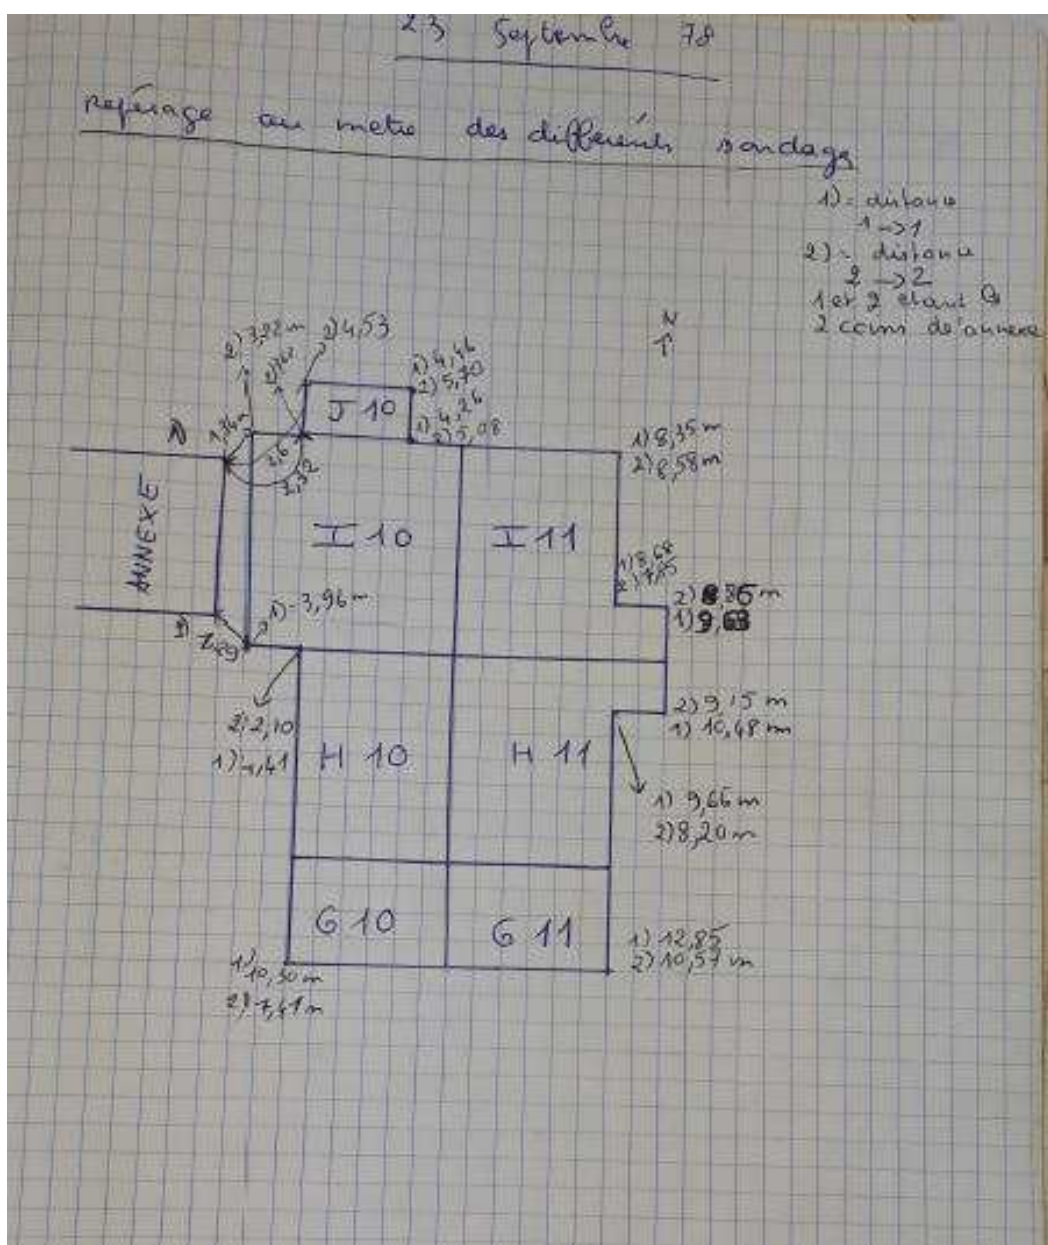 23 Septembre 78
repérage au metre des différents sondages
1) = distance
1 -> 1
2) = distance
2 -> 2
1 et 2 étant les
2 coins de annexe
N
2) 3,22 m
2) 4,53
1) 4,46
2) 5,70
J 10
1) 4,26
2) 5,08
1) 8,35 m
2) 8,58 m
ANNEXE
I 10
I 11
1) 8,68
2) 8,86 m
1) 9,63
1) 3,96 m
2) 2,10
2) 9,15 m
1) 10,48 m
H 10
H 11
1) 9,66 m
2) 8,20 m
G 10
G 11
1) 12,85
2) 10,57 m
1) 10,30 m
2) 7,41 m